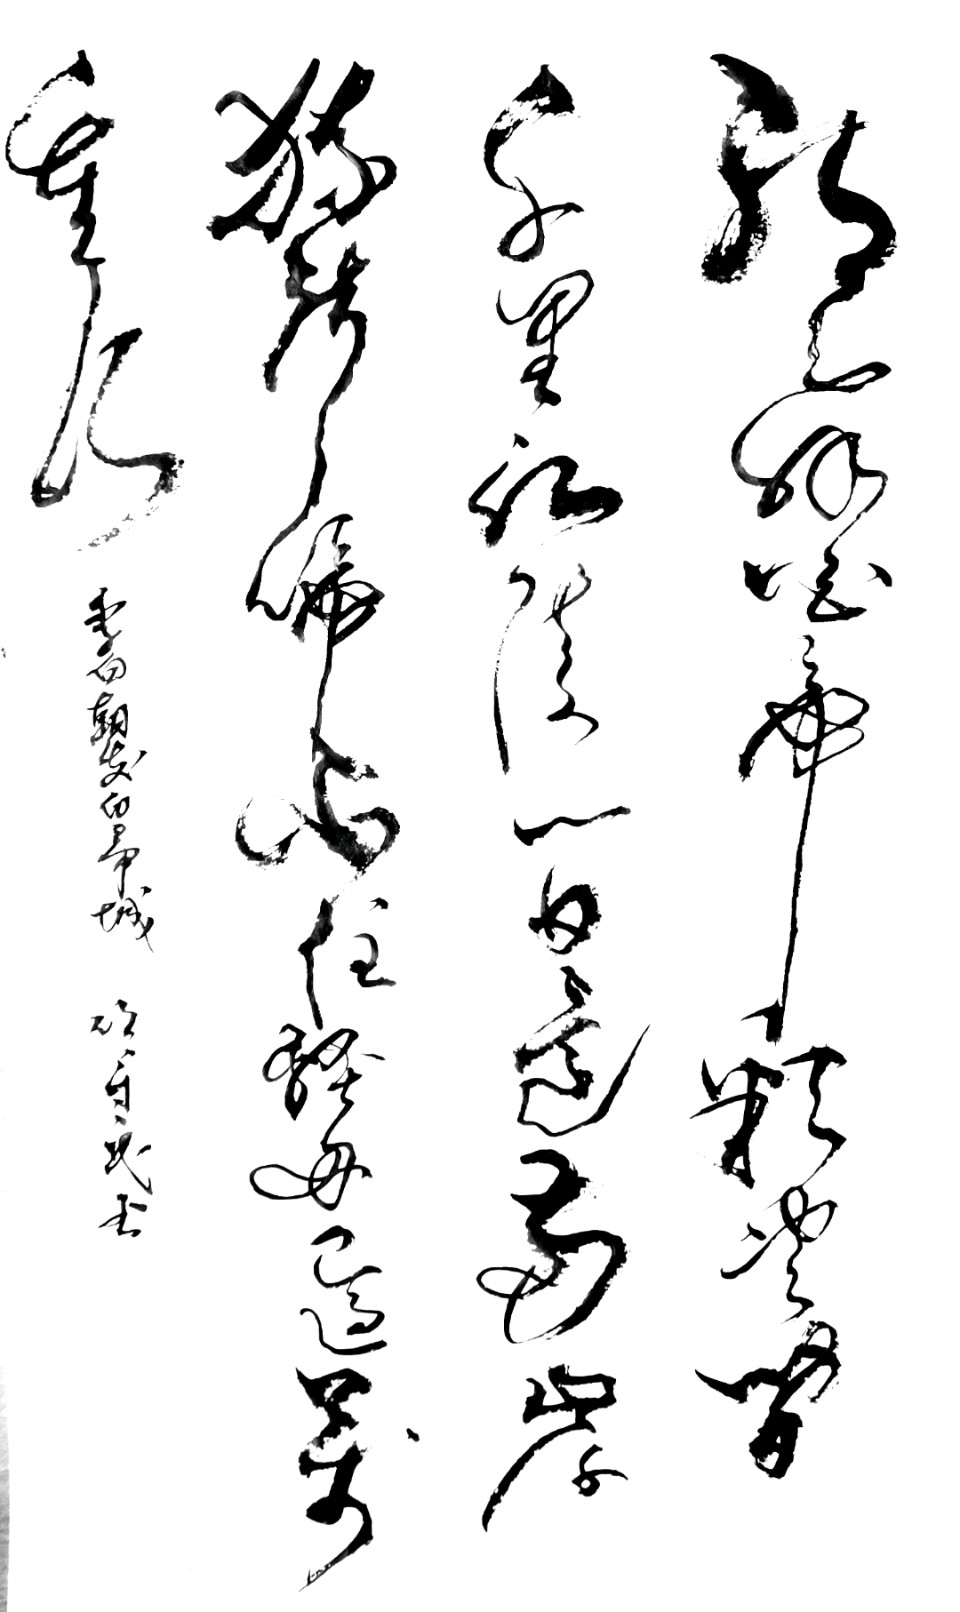 朝辭白帝彩雲間
千里江陵一日還兩岸
猿聲啼不住輕舟已過萬
重山
李白朝發白帝城 書